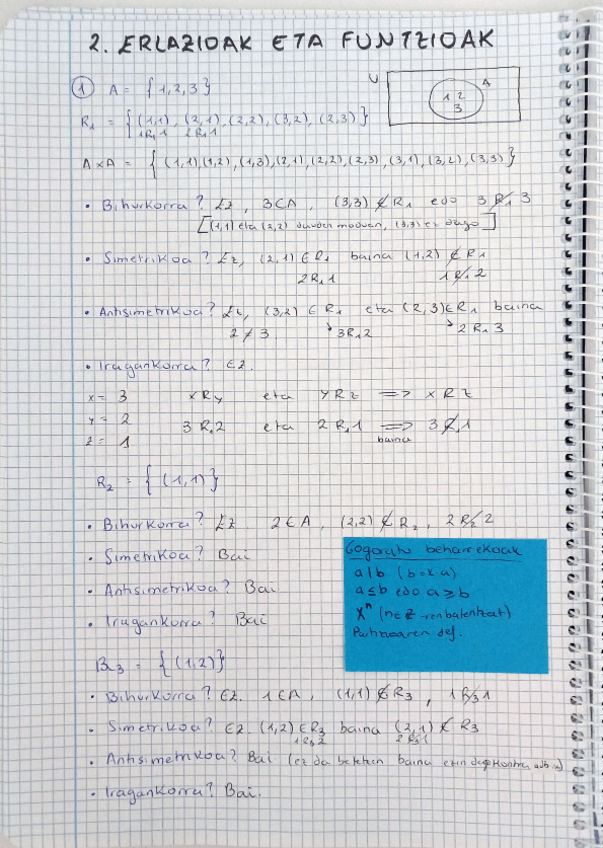 2. ERLAZIOAK ETA FUNTZIOAK
① A = {1,2,3}
U
A
1 2
3
R₁ = {(1,1), (2,1), (2,2), (3,2), (2,3)}
1R₁1 2R₁1
A×A = {(1,1),(1,2),(1,3),(2,1),(2,2),(2,3),(3,1),(3,2),(3,3)}
• Bihurkorra? Ez, 3∈A, (3,3) ∉ R₁ edo 3 R̸₁ 3
[(1,1) eta (2,2) dauden moduan, (3,3) ez dago]
• Simetrikoa? Ez, (2,1) ∈ R₁ baina (1,2) ∉ R₁
2R₁1 1R̸₁2
• Antisimetrikoa? Ez, (3,2) ∈ R₁ eta (2,3) ∈ R₁ baina
2 ≠ 3 ↘3R₁2 ↘2R₁3
• Iragankorra? Ez.
x = 3 xRy eta yRz ⟹ xRz
y = 2 3R₁2 eta 2R₁1 ⟹ 3R̸₁1
z = 1 baina
R₂ = {(1,1)}
• Bihurkorra? Ez 2∈A, (2,2) ∉ R₂, 2R̸₂2
• Simetrikoa? Bai
• Antisimetrikoa? Bai
• Iragankorra? Bai
Gogoratu beharrekoak
a|b (b=k·a)
a≤b edo a≥b
xⁿ (n∈Z-ren balentzat)
def.
R₃ = {(1,2)}
• Bihurkorra? Ez. 1∈A, (1,1) ∉ R₃, 1R̸₃1
• Simetrikoa? Ez. (1,2) ∈ R₃ baina (2,1) ∉ R₃
1R₃2 2R̸₃1
• Antisimetrikoa? Bai (ez da betetzen baina ezin dago kontra adb.)
• Iragankorra? Bai.